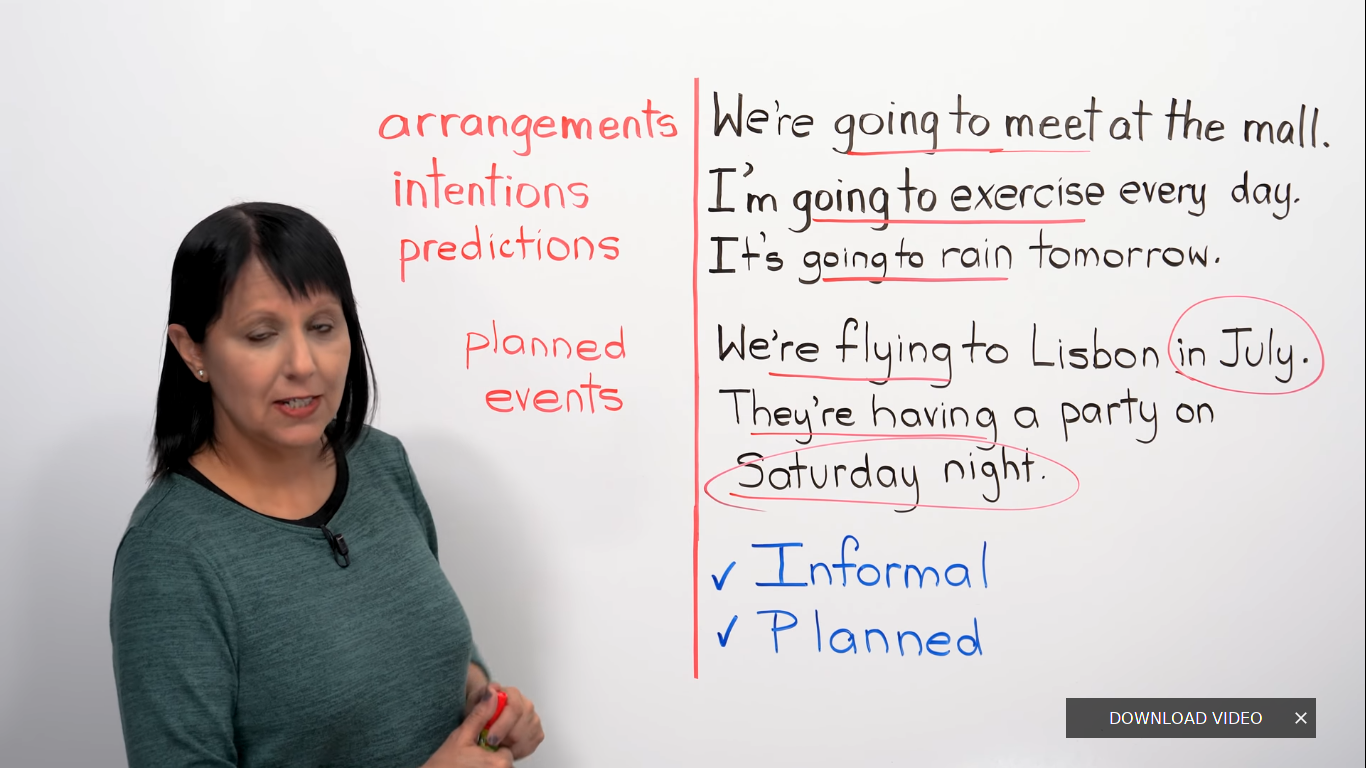 arrangements
intentions
predictions
planned
events
We're going to meet at the mall.
I'm going to exercise every day.
It's going to rain tomorrow.
We're flying to Lisbon in July.
They're having a party on
Saturday night.
✓ Informal
✓ Planned
DOWNLOAD VIDEO ×